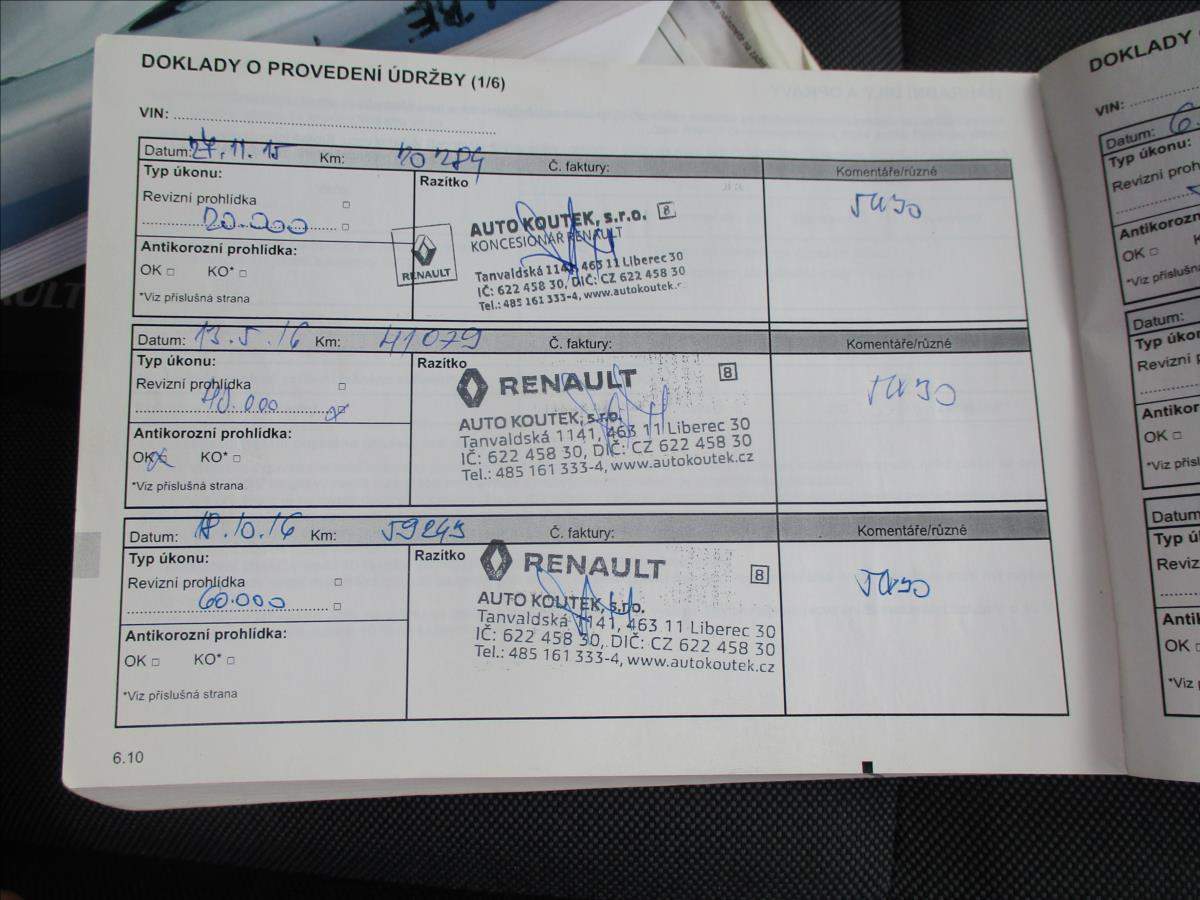 DOKLADY O PROVEDENÍ ÚDRŽBY (1/6)
VIN:
Datum: 27.11.15 Km: 20284 Č. faktury: Komentáře/různé
Typ úkonu:
Razítko
Revizní prohlídka
20.000
5W30
AUTO KOUTEK, s.r.o. 8
KONCESIONÁŘ RENAULT
Antikorozní prohlídka:
RENAULT
Tanvaldská 1141, 463 11 Liberec 30
OK KO*
IČ: 622 458 30, DIČ: CZ 622 458 30
*Viz příslušná strana
Tel.: 485 161 333-4, www.autokoutek.c
Datum: 13.5.16 Km: 41079 Č. faktury: Komentáře/různé
Typ úkonu:
Razítko
Revizní prohlídka
40.000 x
RENAULT 8
5W30
AUTO KOUTEK, s.r.o.
Antikorozní prohlídka:
Tanvaldská 1141, 463 11 Liberec 30
OK x KO*
IČ: 622 458 30, DIČ: CZ 622 458 30
*Viz příslušná strana
Tel.: 485 161 333-4, www.autokoutek.cz
Datum: 18.10.16 Km: 59245 Č. faktury: Komentáře/různé
Typ úkonu:
Razítko
Revizní prohlídka
60.000
RENAULT 8
5W30
AUTO KOUTEK, s.r.o.
Antikorozní prohlídka:
Tanvaldská 1141, 463 11 Liberec 30
OK KO*
IČ: 622 458 30, DIČ: CZ 622 458 30
*Viz příslušná strana
Tel.: 485 161 333-4, www.autokoutek.cz
6.10
DOKLADY
VIN:
Datum:
Typ úkonu:
Revizní proh
Antikorozní
OK
*Viz příslušn
Datum:
Typ úko
Revizní
Antikor
OK
*Viz přísl
Datum
Typ ú
Reviz
Antil
OK
*Viz p